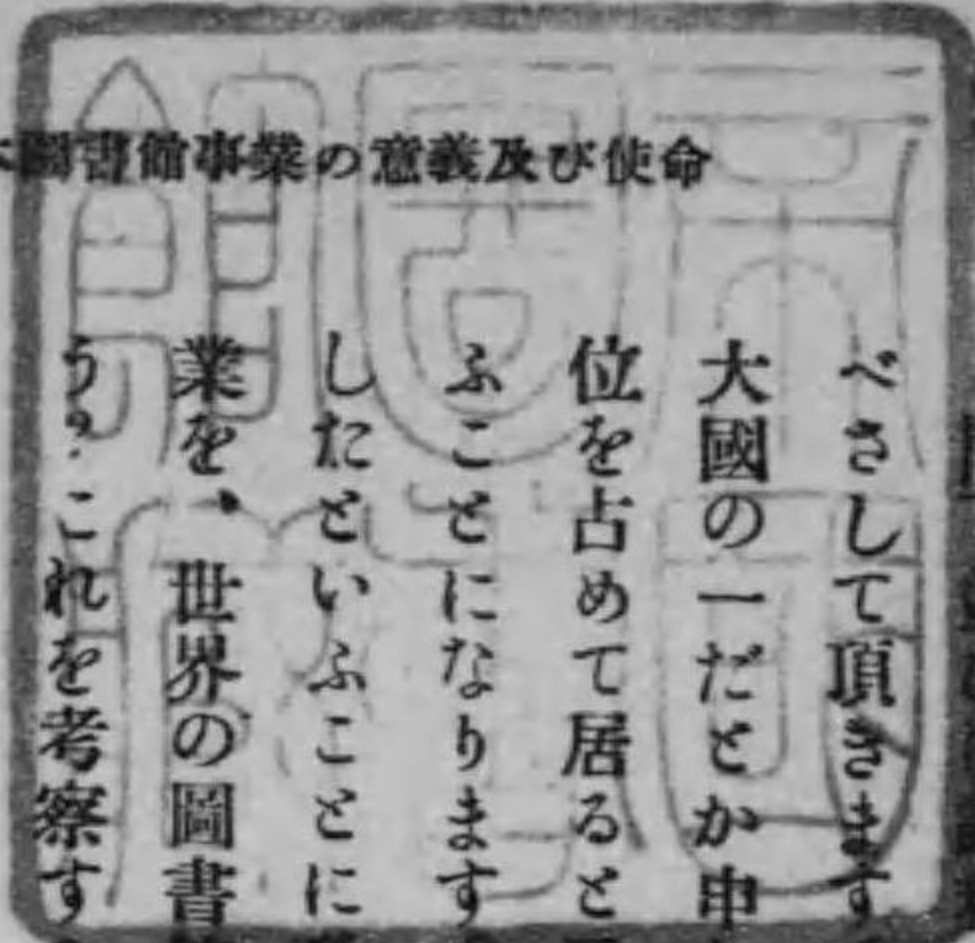 本圖書館事業の意義及び使命
べさして頂きます
大國の一だとか申
位を占めて居ると
ふことになります
したといふことに
業を、世界の圖書
う？これを考察す